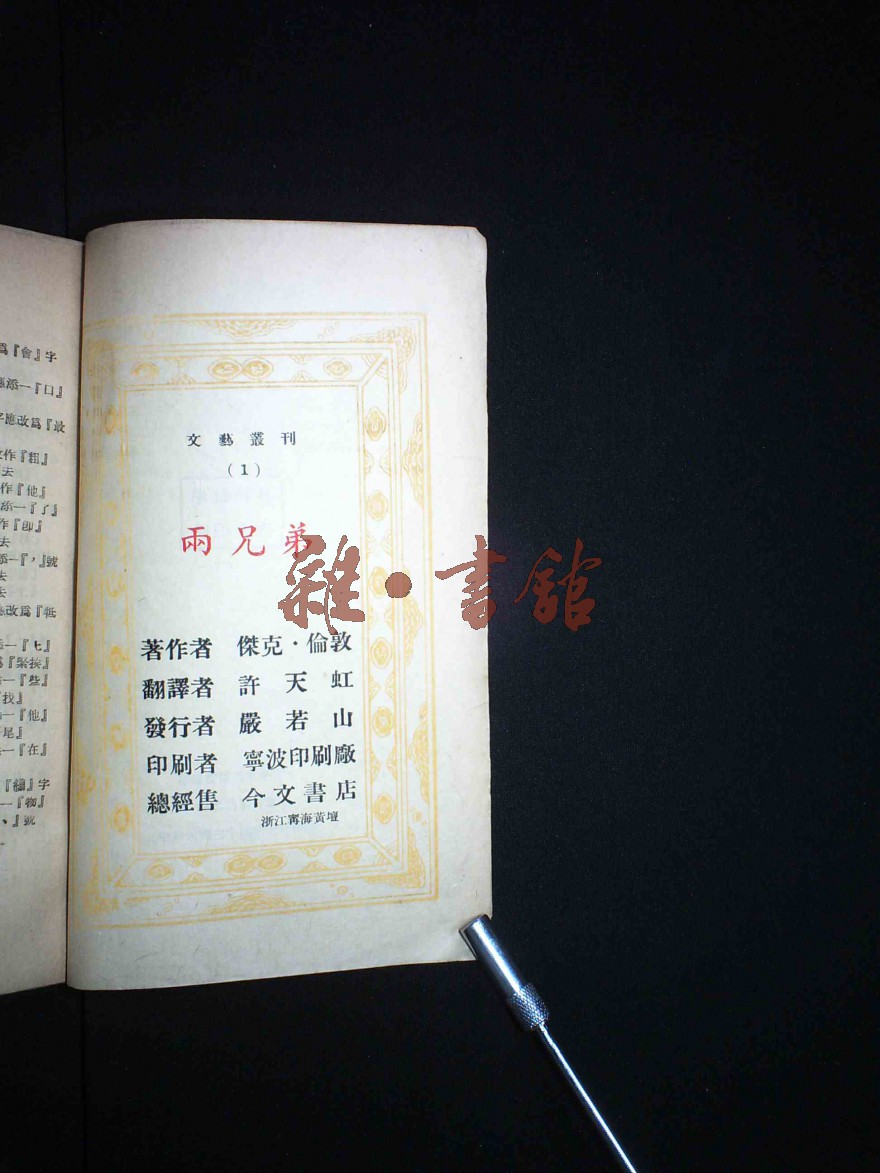 爲『會』字
添一『口』
字應改爲『最
作『粗』
去
作『他』
添一『了』
作『卽』
去
添一『，』號
去
去
應改爲『牴
一『七』
爲『緊挨』
一『些』
『我』
一『他』
尾』
一『在』
『纏』字
一『物』
、』號
文藝叢刊
(1)
兩兄弟
雜·書館
著作者 傑克·倫敦
翻譯者 許天虹
發行者 嚴若山
印刷者 寧波印刷廠
總經售 今文書店
浙江寧海黃壇